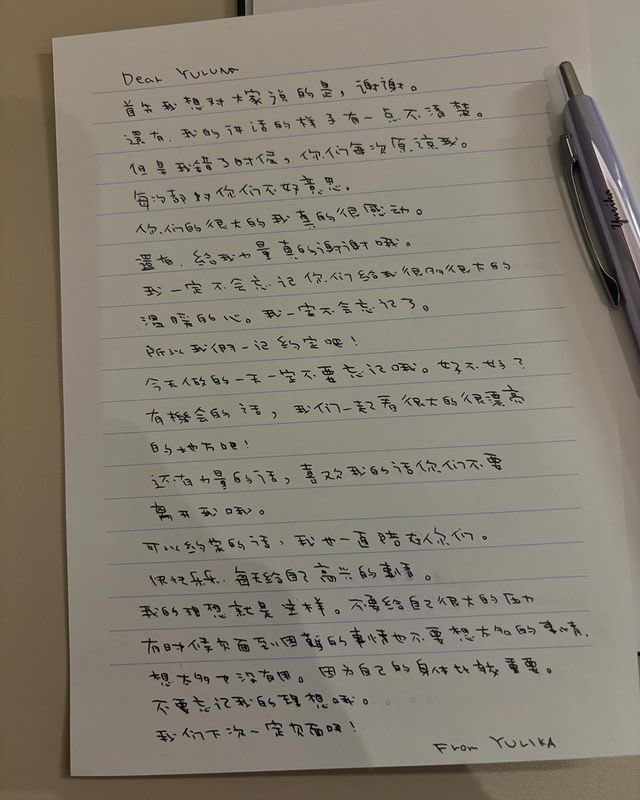 Dear YULUNA
首先我想对大家说的是，谢谢。
還有．我的讲话的样子有一点不清楚。
但是我错了时候，你们每次原谅我。
每次都对你们不好意思。
你们的很大的我真的很感动。
還有．给我力量真的谢谢哦。
我一定不会忘记你们给我很多很大的
溫暖的心。我一定不会忘记了。
所以我們一记约定吧！
今天做的一天一定不要忘记哦。好不好？
有機会的话，我们一起看很大的很漂高
的地方吧！
还有力量的话，喜欢我的话你们不要
离开我哦。
可以约定的话，我也一直陪在你们。
快快乐乐．每天给自己高兴的事情。
我的理想就是这样。不要给自己很大的压力
有时候见面到困難的事情也不要想太多的事情．
想太多也没有用。因为自己的身体比较重要。
不要忘记我的理想哦。
我们下次一定见面吧！
From YULIKA
Yurika